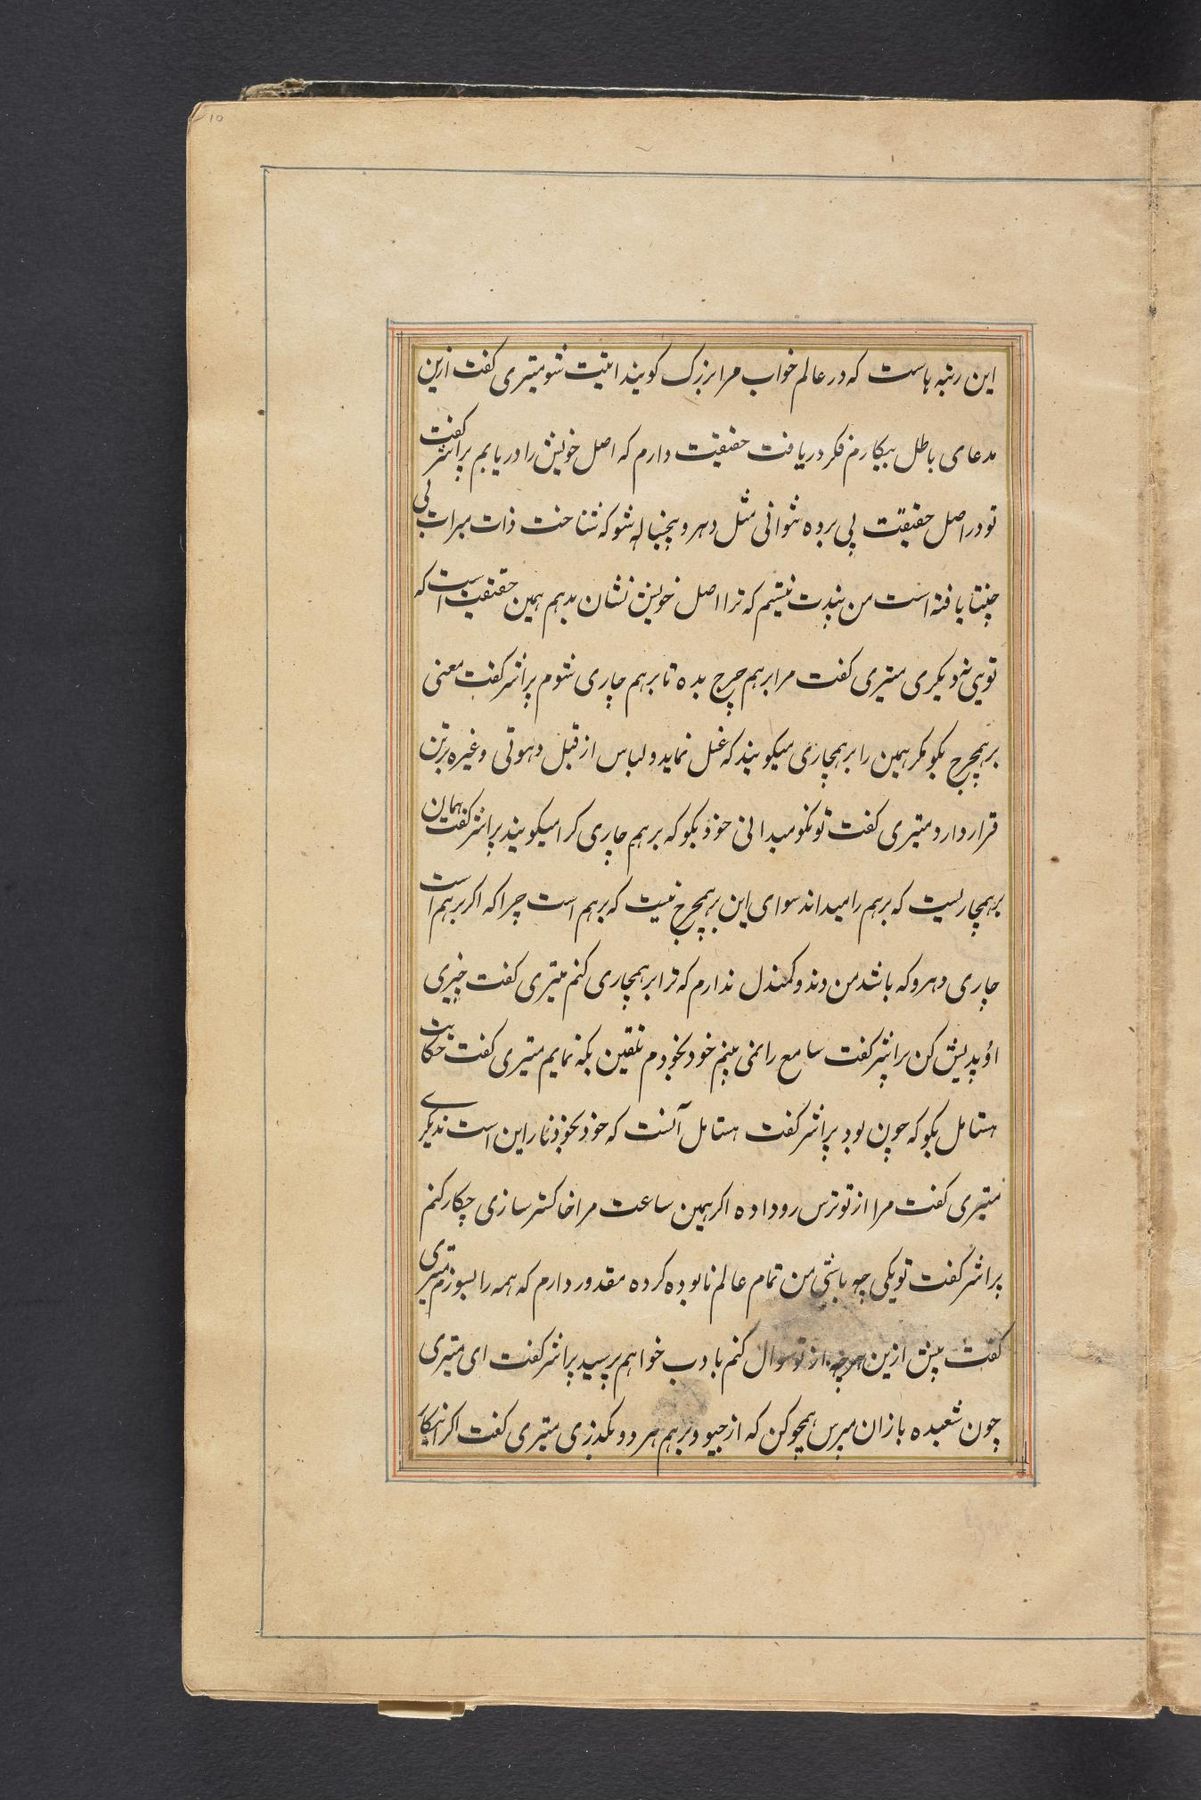 این رتبه هاست که در عالم خواب مرا بزرک کویند انیت شو میتری کفت ازین
مدعای باطل بیکارم فکر دریافت حقیقت دارم که اصل خویش را دریابم پراشر کفت
تو در اصل حقیقت پی برده نتوانی مثل دهرو بیخیاله شو که شناخت ذات مبرات بی
چنتا یافته است من پندت نیستم که ترا اصل خویش نشان بدهم همین حقیقت است که
تویی نه دیکری میتری کفت مرا برهم چرج بده تا برهم چاری شوم پراشر کفت معنی
برهمچرج بکو مکر همین را برهمچاری میکویند که غسل نماید و لباس از قبل دهوتی و غیره برتن
قرار دارد میتری کفت تو نکو میدانی خود بکو که برهم چاری کرا میکویند پراشر کفت همان
برهمچاریست که برهم را میداند سوای این برهمچرج نیست که برهم است چرا که اکر برهم است
چاری دهرو که باشد من دند و کمندل ندارم که ترا برهمچاری کنم میتری کفت چیزی
اوپدیش کن پراشر کفت سامع را نمی بینم خود بخودم تلقین بکه نمایم میتری کفت حکایت
هستامل بکو که چون بود پراشر کفت هستامل آنست که خود بخود نمار این است نه دیکری
میتری کفت مرا از تو ترس رو داده اکر همین ساعت مرا خاکستر سازی چکار کنم
پراشر کفت تو یکی چه باشی من تمام عالم نابوده کرده مقدور دارم که همه را بسوزم میتری
کفت پیش ازین هرچه از تو سوال کنم بادب خواهم پرسید پراشر کفت ای میتری
چون شعبده بازان مپرس همچو کن که از جیو و برهم هر دو بکذری میتری کفت اکر
10